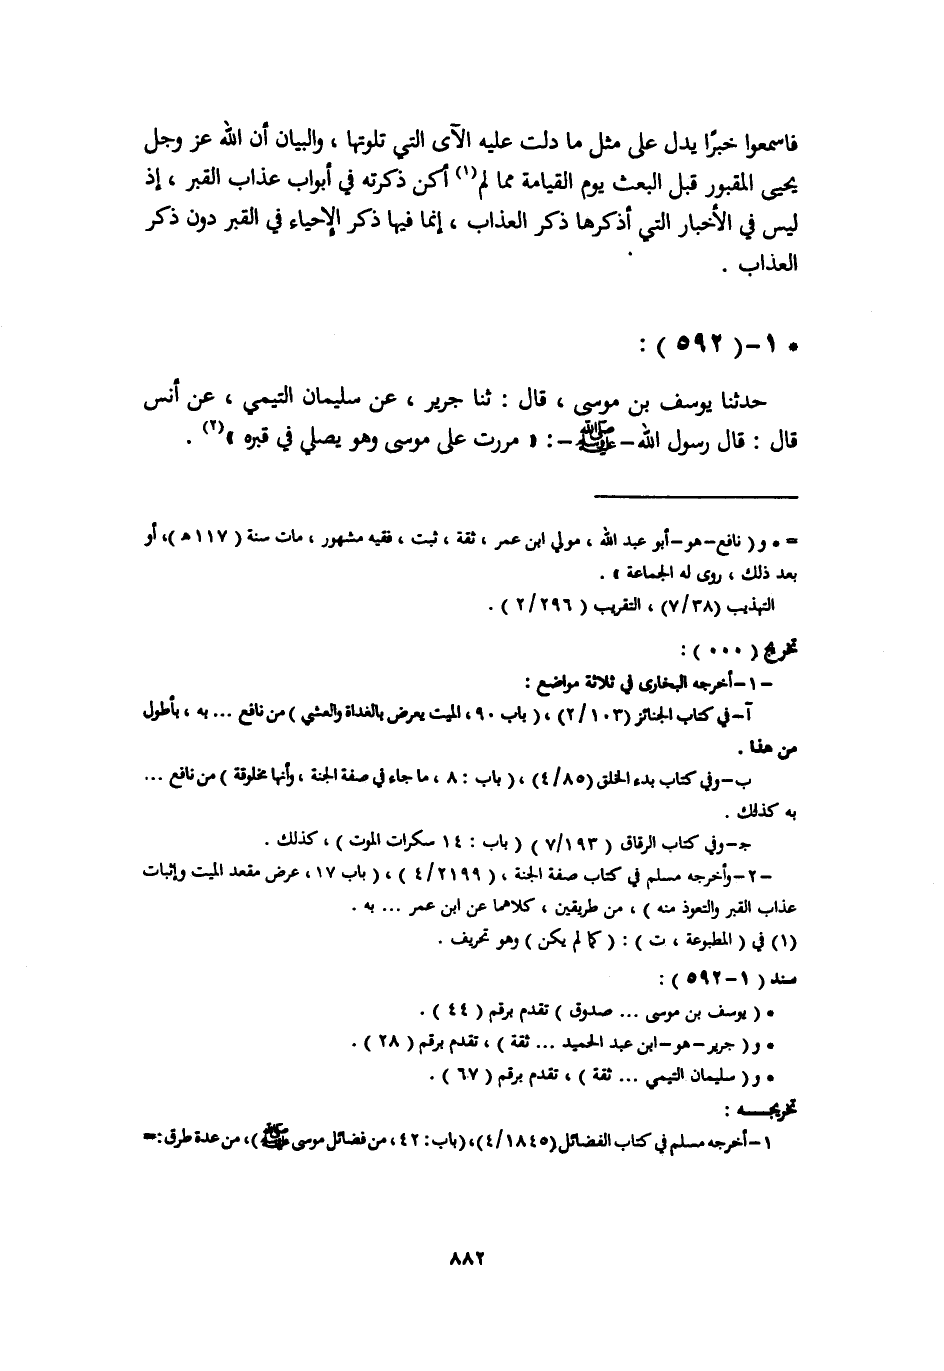 فاسمعوا خبرًا يدل على مثل ما دلت عليه الآى التي تلوتها ، والبيان أن الله عز وجل
يحيى المقبور قبل البعث يوم القيامة مما لم(١) أكن ذكرته في أبواب عذاب القبر ، إذ
ليس في الأخبار التي أذكرها ذكر العذاب ، إنما فيها ذكر الإحياء في القبر دون ذكر
العذاب .
* ١-( ٥٩٢ ) :
حدثنا يوسف بن موسى ، قال : ثنا جرير ، عن سليمان التيمي ، عن أنس
قال : قال رسول الله - ﷺ -: « مررت على موسى وهو يصلي في قبره »(٢) .
= • و( نافع-هو-أبو عبد الله ، مولي ابن عمر ، ثقة ، ثبت ، فقيه مشهور ، مات سنة ( ١١٧ هـ )، أو
بعد ذلك ، روى له الجماعة » .
التهذيب (٧/٣٨) ، التقريب ( ٢/٢٩٦ ) .
تخريج ( ٠٠٠ ) :
-١-أخرجه البخارى في ثلاثة مواضع :
آ-في كتاب الجنائز (٢/١٠٣) ، ( باب ٩٠، الميت يعرض بالغداة والعشي ) من نافع ... به ، بأطول
من هذا .
ب-وفي كتاب بدء الخلق (٤/٨٥) ، ( باب : ٨ ، ما جاء في صفة الجنة ، وأنها مخلوقة ) من نافع ...
به كذلك .
جـ-وفي كتاب الرقاق ( ٧/١٩٣ ) ( باب : ١٤ سكرات الموت ) ، كذلك .
-٢-وأخرجه مسلم في كتاب صفة الجنة ، ( ٤/٢١٩٩ ) ، ( باب ١٧ ، عرض مقعد الميت وإثبات
عذاب القبر والتعوذ منه ) ، من طريقين ، كلاهما عن ابن عمر ... به .
(١) في ( المطبوعة ، ت ) : ( كما لم يكن ) وهو تحريف .
سند ( ١-٥٩٢ ) :
• ( يوسف بن موسى ... صدوق ) تقدم برقم ( ٤٤ ) .
• و( جرير-هو-ابن عبد الحميد ... ثقة ) ، تقدم برقم ( ٢٨ ) .
• و( سليمان التيمي ... ثقة ) ، تقدم برقم ( ٦٧ ) .
تخريجـــه :
١-أخرجه مسلم في كتاب الفضائل (٤/١٨٤٥)، (باب: ٤٢ ، من فضائل موسى ﷺ)، من عدة طرق :=
٨٨٢